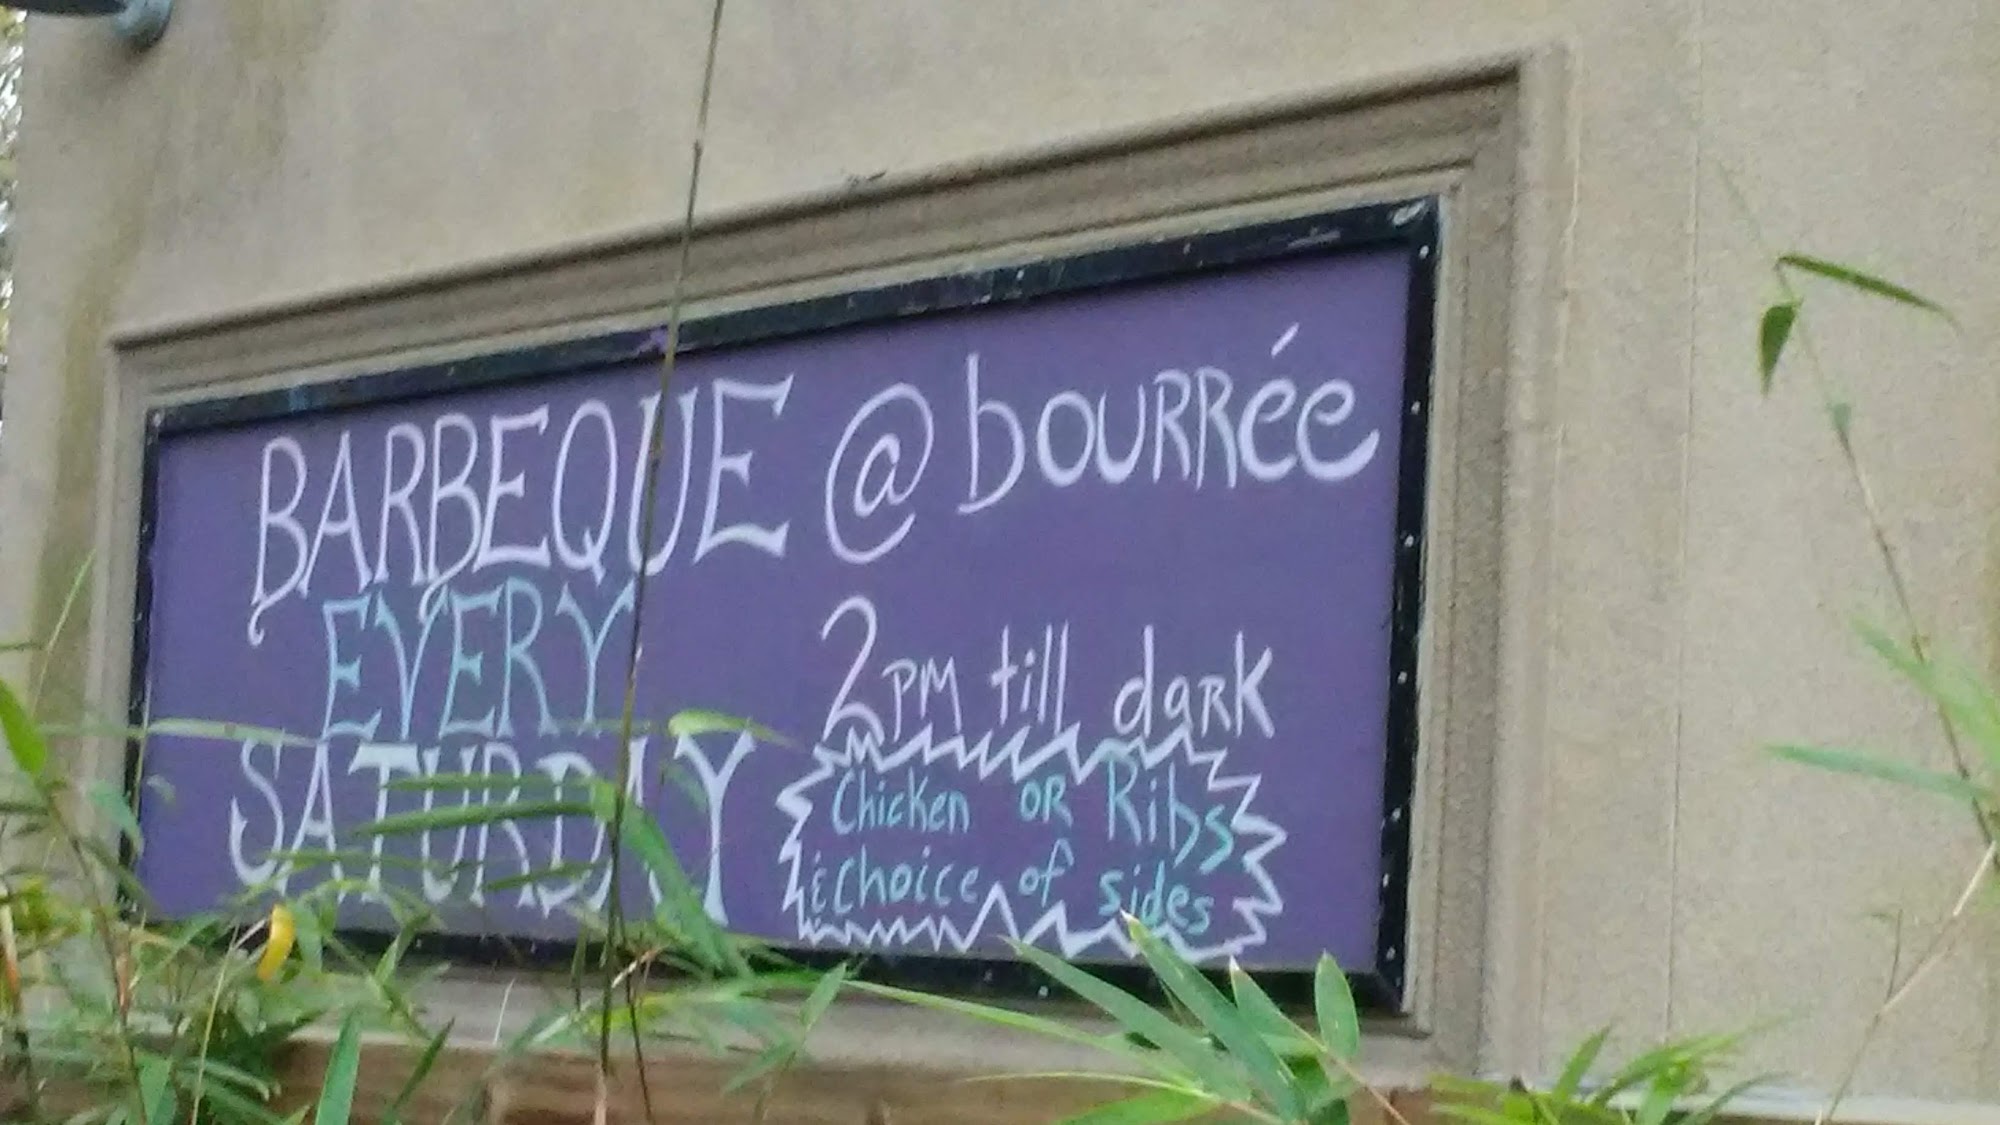 BARBEQUE @ bouRRée
EVERY
SATURDAY
2PM till dark
Chicken OR Ribs
& Choice of sides